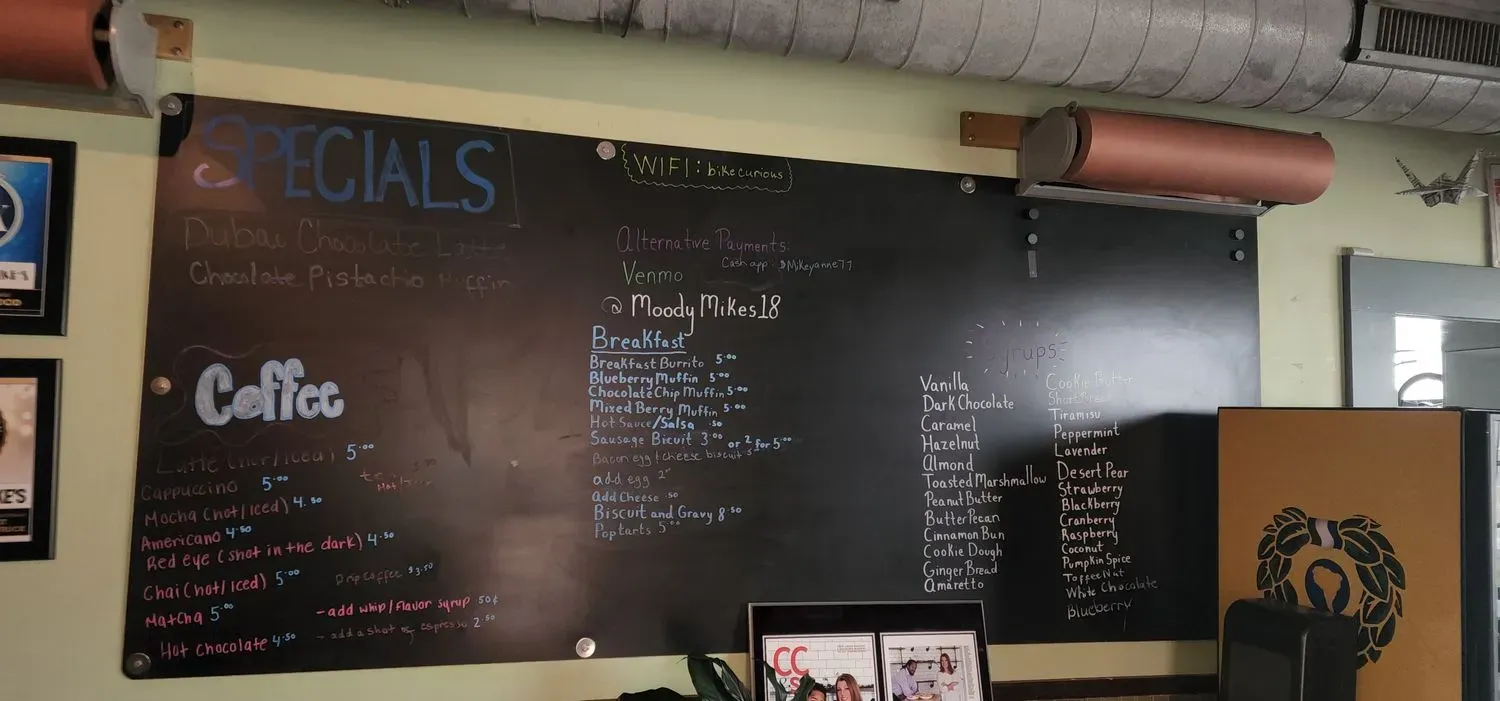 SPECIALS
Dubai Chocolate Latte
Chocolate Pistachio Muffin
Coffee
Latte (hot/iced) 5.00
Cappuccino 5.00
Mocha (hot/iced) 4.50
Americano 4.50
Red eye (shot in the dark) 4.50
Chai (hot/iced) 5.00
Matcha 5.00
Hot Chocolate 4.50
Drip coffee $3.50
- add whip/flavor syrup 50¢
- add a shot of espresso 2.50
WIFI: bikecurious
Alternative Payments:
Cashapp: $Mikeyanne77
Venmo
@MoodyMikes18
Breakfast
Breakfast Burrito 5.00
Blueberry Muffin 5.00
Chocolate Chip Muffin 5.00
Mixed Berry Muffin 5.00
Hot Sauce/Salsa .50
Sausage Bicuit 3.00 or 2 for 5.00
Bacon egg + cheese biscuit
add egg
add Cheese .50
Biscuit and Gravy 8.50
Poptarts 5.00
Syrups
Vanilla
Dark Chocolate
Caramel
Hazelnut
Almond
Toasted Marshmallow
Peanut Butter
Butter Pecan
Cinnamon Bun
Cookie Dough
Ginger Bread
Amaretto
Cookie Butter
Short Bread
Tiramisu
Peppermint
Lavender
Desert Pear
Strawberry
Blackberry
Cranberry
Raspberry
Coconut
Pumpkin Spice
Toffee Nut
White Chocolate
Blueberry
KE'S
CC